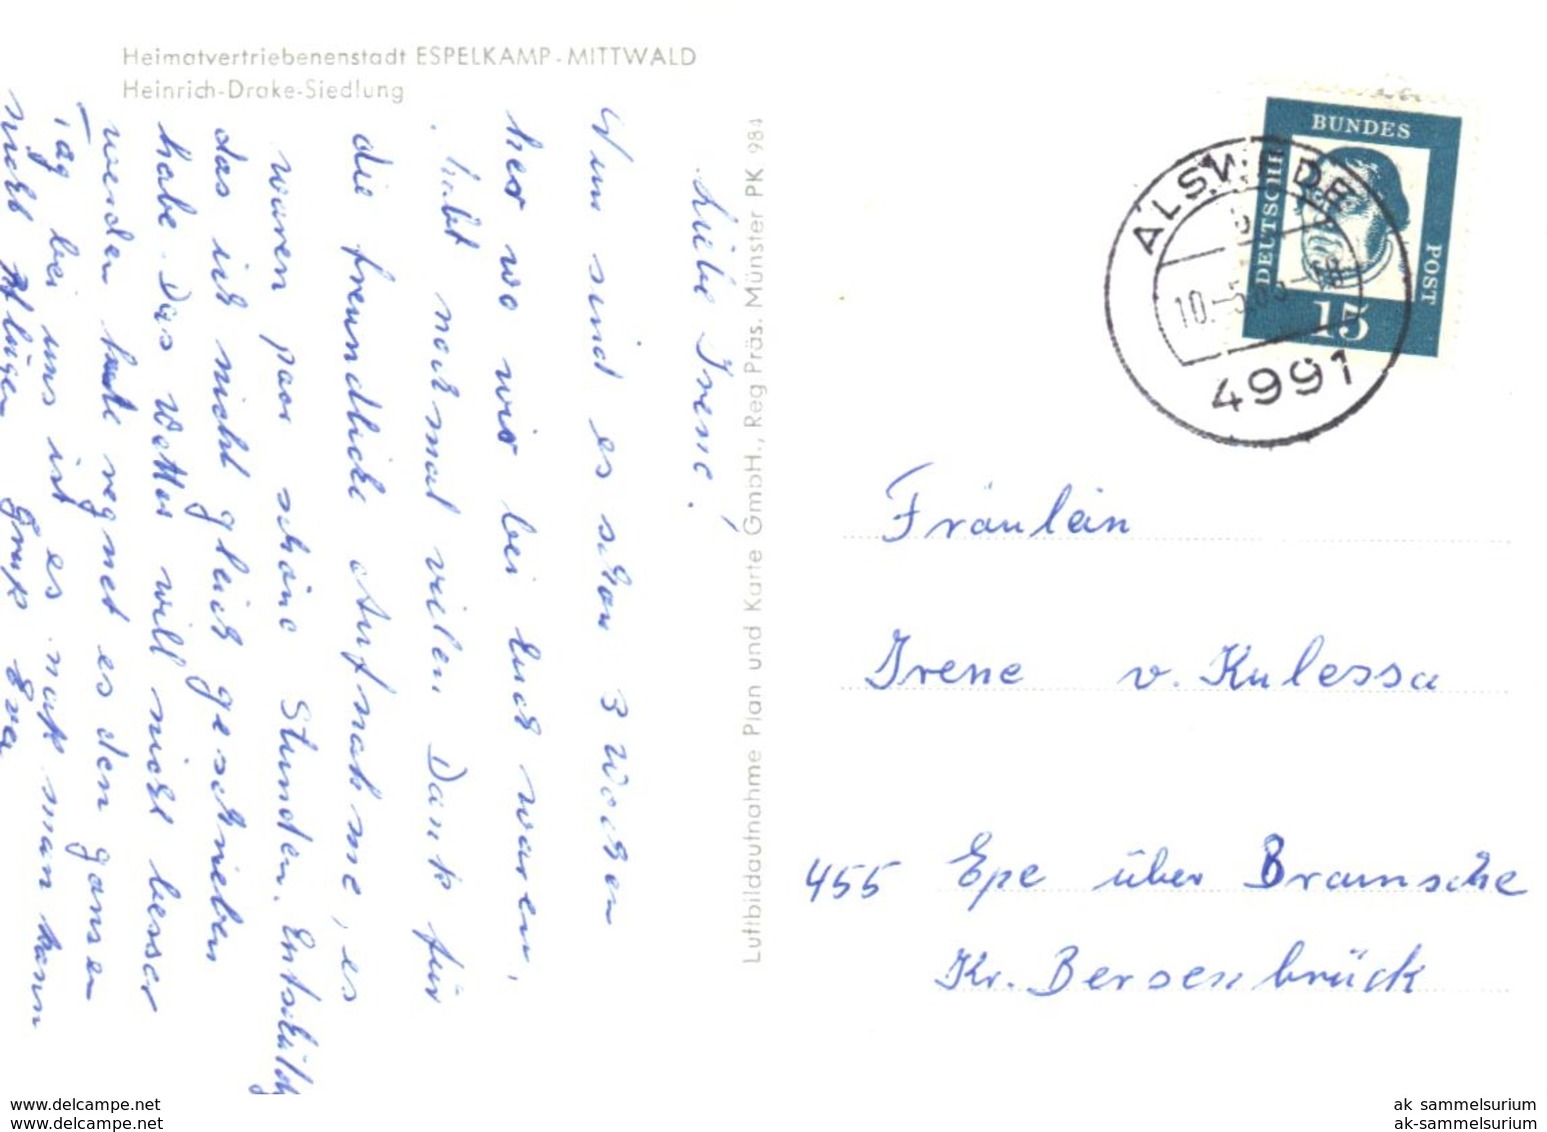 Heimatvertriebenenstadt ESPELKAMP-MITTWALD
Heinrich-Drake-Siedlung
Liebe Irene!
Nun sind es schon 3 Wochen
her wo wir bei Euch waren,
habt nochmal vielen Dank für
die freundliche Aufnahme, es
waren paar schöne Stunden. Entschuldg
das ich nicht gleich geschrieben
habe. Das Wetter will nicht besser
werden heute regnet es den ganzen
Tag bei uns ist es naß man kann
nicht Pflügen Gruß Eva
Luftbildaufnahme Plan und Karte GmbH., Reg Präs. Münster PK 984
DEUTSCHE BUNDES POST
15
ALSWEDE
b
10.-5.
4991
Fräulein
Irene v. Kulessa
455 Epe über Bramsche
Kr. Bersenbrück
www.delcampe.net
www.delcampe.net
ak_sammelsurium
ak-sammelsurium